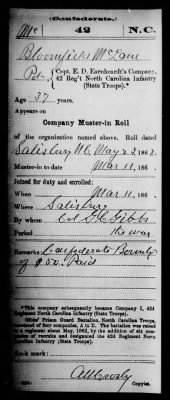 (Confederate.)
Mc 42 N.C.
Bloomfield McLane
Pvt., Capt. E. D. Earnheardt's Company,
42 Reg't North Carolina Infantry
(State Troops).*
Age 37 years.
Appears on
Company Muster-in Roll
of the organization named above. Roll dated
Salisbury N.C, May 22, 1862.
Muster-in to date Mar 11, 186 .
Joined for duty and enrolled:
When Mar 11, 186 .
Where Salisbury
By whom Col. G. C. Gibbs
Period the war
Remarks: Confederate Bounty
of $50. Paid
*This company subsequently became Company I, 42d
Regiment North Carolina Infantry (State Troops).
Gibbs' Prison Guard Battalion, North Carolina Troops,
consisted of four companies, A to D. The battalion was raised
to a regiment about May, 1862, by the addition of six companies
of recruits and designated the 42d Regiment North
Carolina Infantry (State Troops).
Book mark:
Copyist.